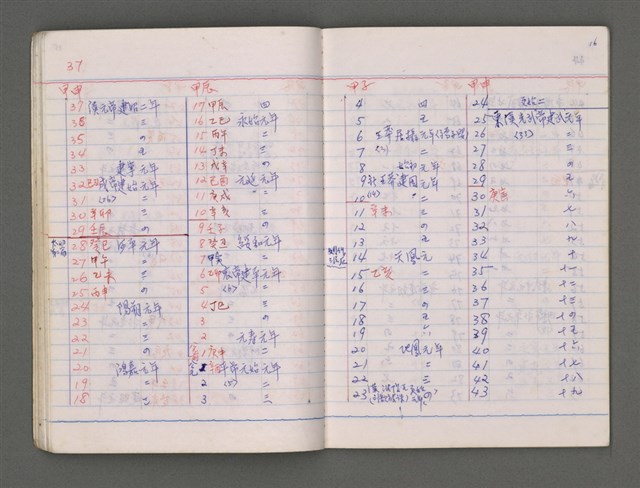 37
甲申
37 漢元帝建昭二年
36 三
35 四
34 五
33 建寧元年
32 己丑 成帝建始元年
31 (26) 二
30 辛卯 三
29 壬辰 四
28 癸巳 河平元年
27 甲午 二
26 乙未 三
25 丙申 四
24 陽朔元年
23 二
22 三
21 四
20 鴻嘉元年
19 二
18 三
甲辰
17 甲辰 四
16 乙巳 永始元年
15 丙午 二
14 丁未 三
13 戊申 四
12 己酉 元延元年
11 庚戌 二
10 辛亥 三
9 壬子 四
8 癸丑 綏和元年
7 甲寅 二
6 乙卯 哀帝建平元年
5 (6) 二
4 丁巳 三
3 四
2 元壽元年
1 庚申 二
1 辛酉 平帝元始元年
2 (5) 二
3 三
16
甲子
4 四
5 五
6 孺嬰居攝元年
7 二
8 始初元年
9 新王莽建國元年
10 二
11 辛未 三
12 四
13 五
14 天鳳元
15 乙亥 二
16 三
17 四
18 五
19 六
20 地皇元年
21 二
22 三
23
甲申
24 更始二
25 東漢光武帝建武元年
26 (31) 二
27 三
28 四
29 五
30 庚寅 六
31 七
32 八
33 九
34 十
35 十一
36 十二
37 十三
38 十四
39 十五
40 十六
41 十七
42 十八
43 十九